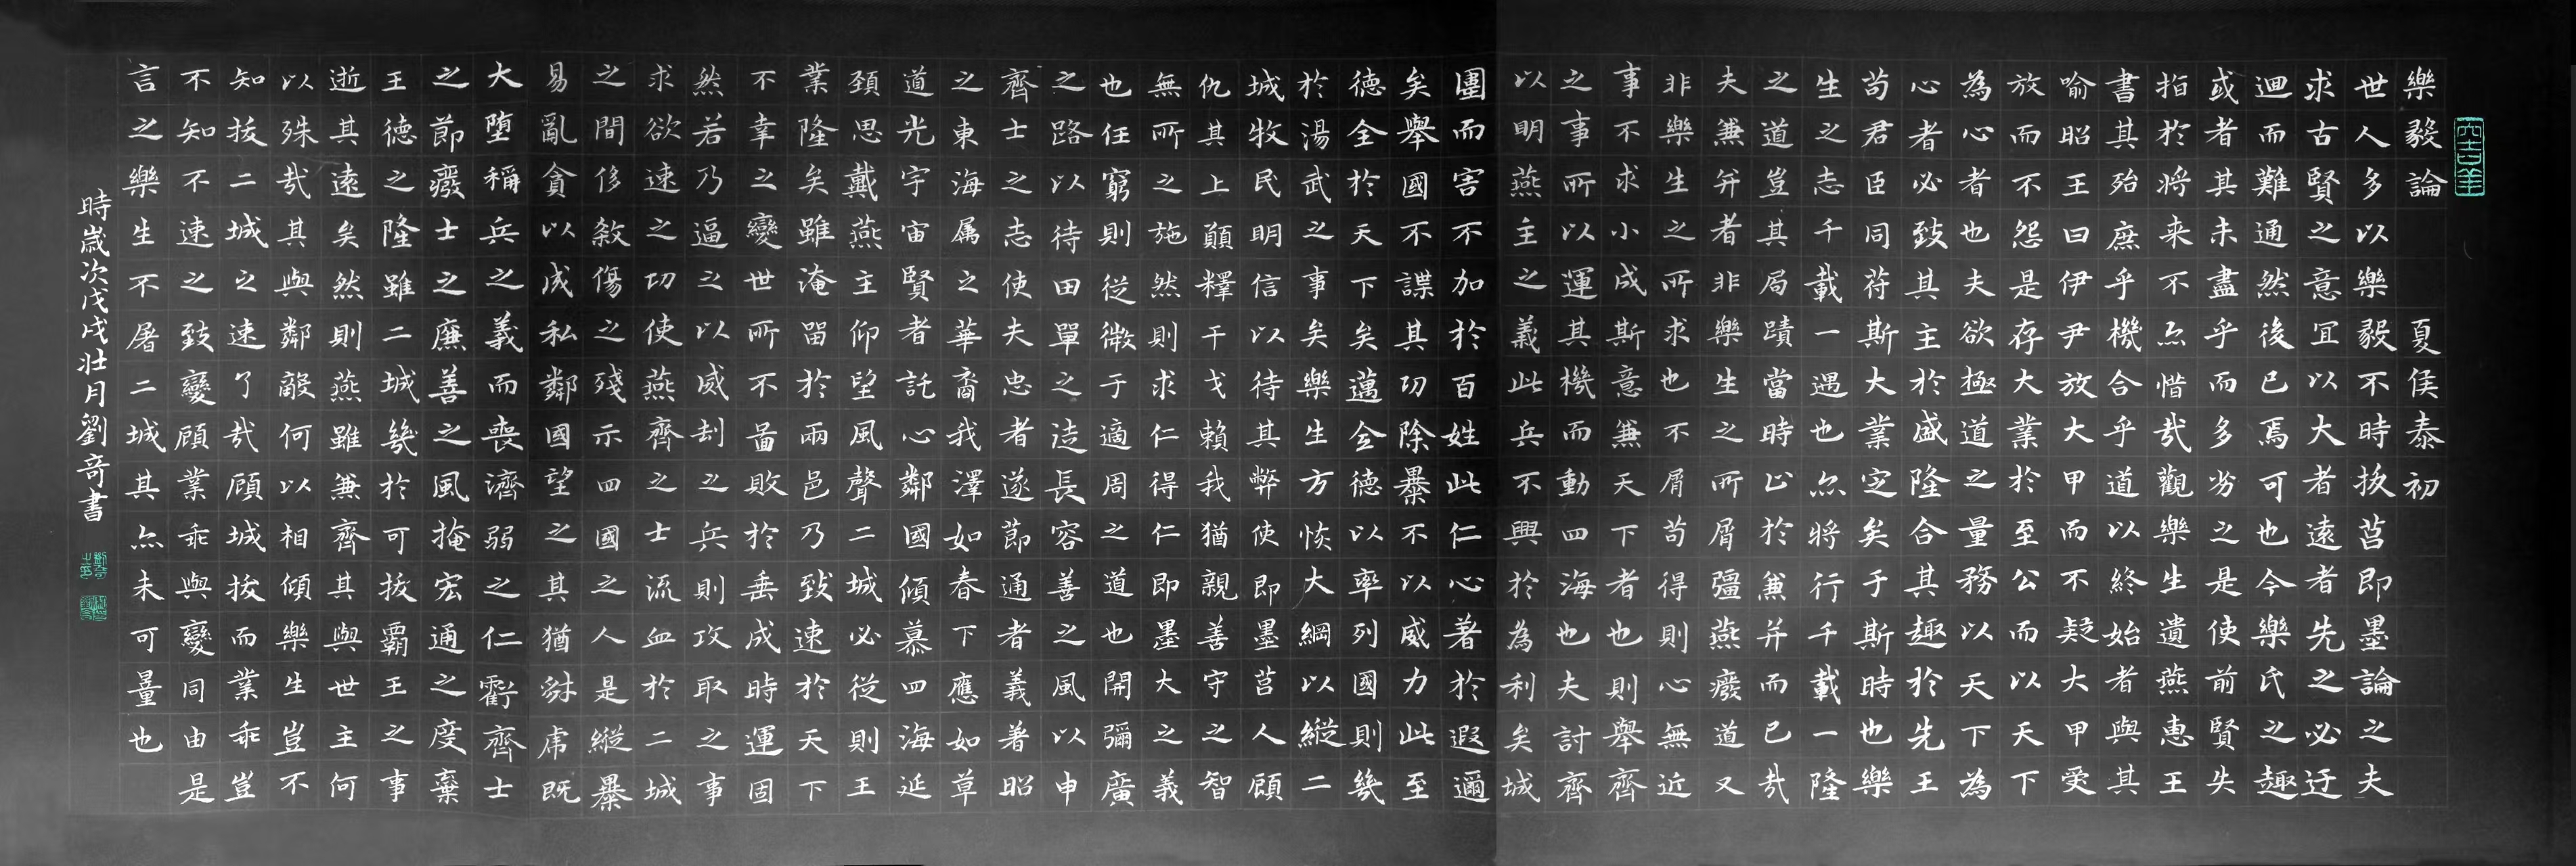 樂毅論 夏侯泰初
世人多以樂毅不時拔莒即墨論之夫
求古賢之意宜以大者遠者先之必迂
迴而難通然後已焉可也今樂氏之趣
或者其未盡乎而多劣之是使前賢失
指於將来不亦惜哉觀樂生遺燕惠王
書其殆庶乎機合乎道以終始者與其
喻昭王曰伊尹放大甲而不疑大甲受
放而不怨是存大業於至公而以天下
為心者也夫欲極道之量務以天下為
心者必致其主於盛隆合其趣於先王
苟君臣同苻斯大業定矣于斯時也樂
生之志千載一遇也亦將行千載一隆
之道豈其局蹟當時止於兼并而已哉
夫兼并者非樂生之所屑彊燕廢道又
非樂生之所求也不屑苟得則心無近
事不求小成斯意兼天下者也則舉齊
之事所以運其機而動四海也夫討齊
以明燕主之義此兵不興於為利矣城
圍而害不加於百姓此仁心著於遐邇
矣舉國不謀其功除暴不以威力此至
德全於天下矣邁全德以率列國則幾
於湯武之事矣樂生方恢大綱以縱二
城牧民明信以待其弊使即墨莒人顧
仇其上願釋干戈賴我猶親善守之智
無所之施然則求仁得仁即墨大之義
也任窮則從微于適周之道也開彌廣
之路以待田單之徒長容善之風以申
齊士之志使夫忠者遂節通者義著昭
之東海属之華裔我澤如春下應如草
道光宇宙賢者託心鄰國傾慕四海延
頚思戴燕主仰望風聲二城必從則王
業隆矣雖淹留於兩邑乃致速於天下
不幸之變世所不啚敗於垂成時運固
然若乃逼之以威刼之兵則攻取之事
求欲速之功使燕齊之士流血於二城
之間侈殺傷之殘示四國之人是縱暴
易亂貪以成私鄰國望之其猶豺虎既
大堕稱兵之義而喪濟弱之仁虧齊士
之節癈士之廉善之風掩宏通之度棄
王德之隆雖二城幾於可拔霸王之事
逝其遠矣然則燕雖兼齊其與世主何
以殊哉其與鄰敵何以相傾樂生豈不
知拔二城之速了哉顧城拔而業乖豈
不知不速之致變顧業乖與變同由是
言之樂生不屠二城其亦未可量也
時嵗次戊戌壯月劉奇書